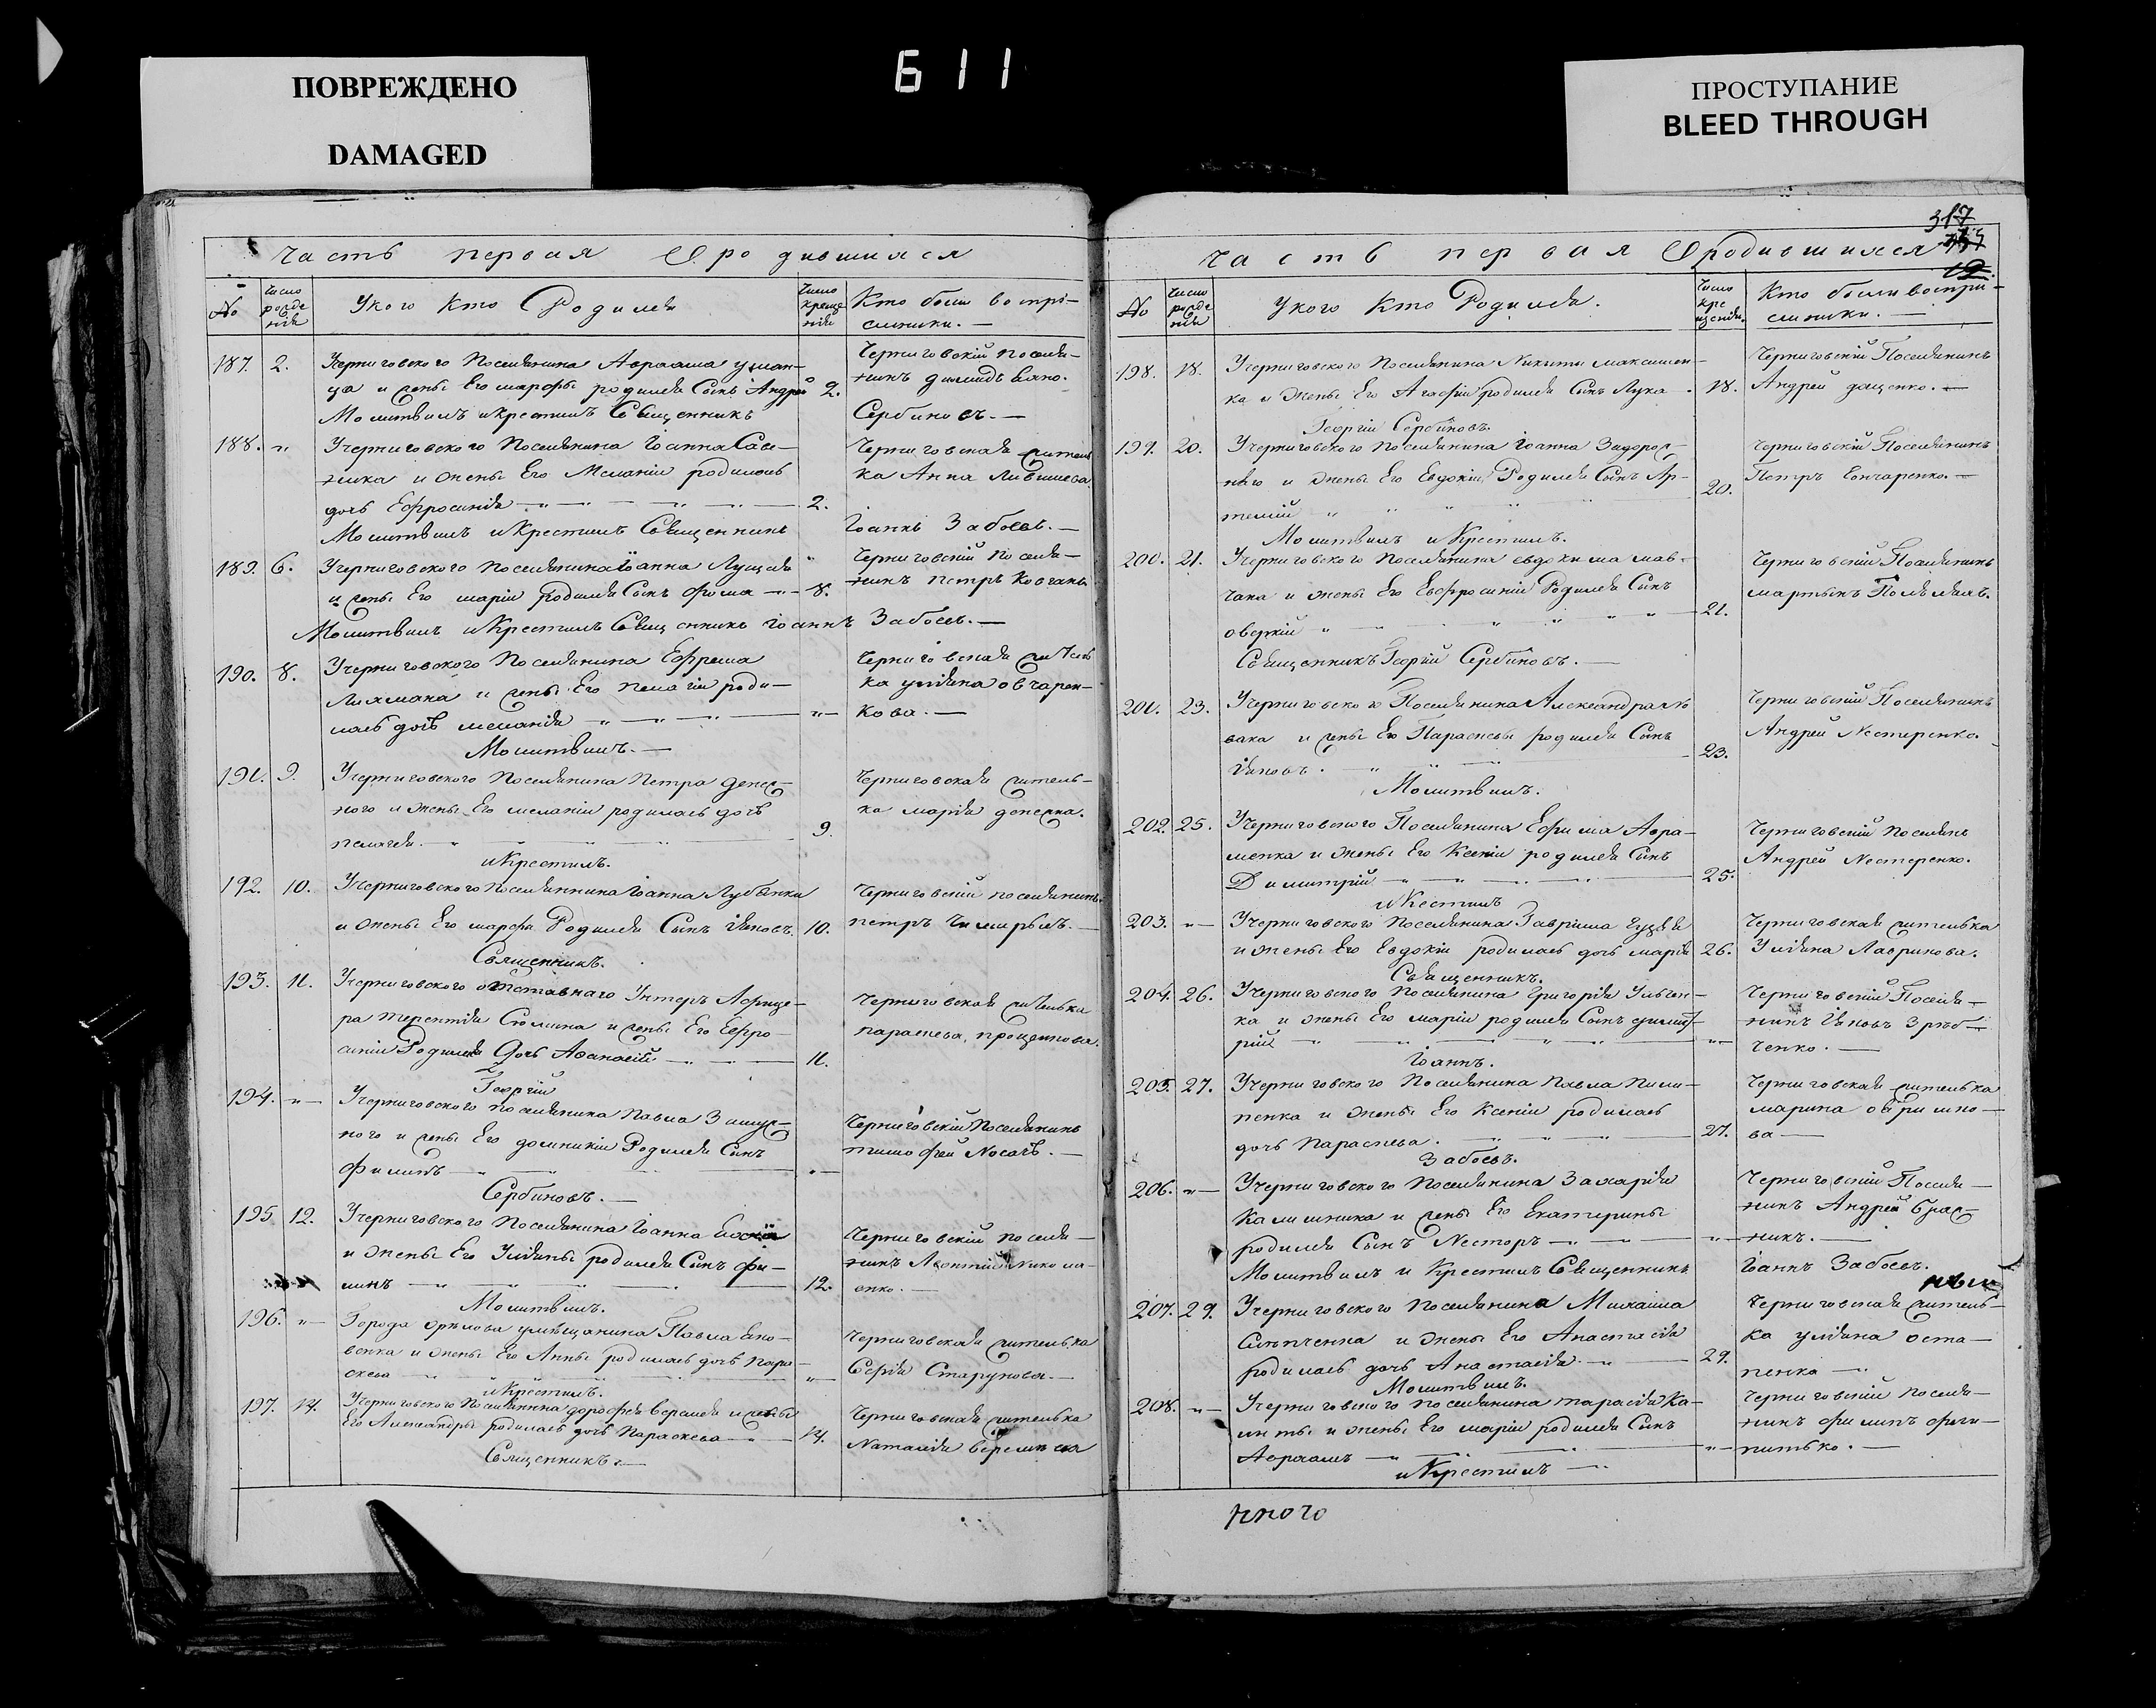 ПОВРЕЖДЕНО
DAMAGED
Б11
ПРОСТУПАНИЕ
BLEED THROUGH
Часть первая О родившихся
№
Число рожде нія
У кого Кто Родился
Число креще нія
Кто были воспрі-
емники. —
187. 2. У черниговского Поселянина Авраама уман-
ца и жены Его марфы родился Сынъ Андрей 2.
Молитвилъ и крестилъ Священникъ
Черниговскій поселя-
нинъ
Сербиновъ. —
188. „ У черниговского Поселянина Іоанна Саве-
и жены Его Меланіи родилась
дочь Ефросинія — „ — „ — 2.
Молитвилъ и крестилъ Священникъ
Черниговская житель
ка Анна
Іоаннъ Забоевъ. —
189. 6. У черниговского поселянина Іоанна Луцая
и жены Его маріи родился Сынъ фома — 8.
Молитвилъ и Крестилъ Священникъ Іоаннъ Забоевъ. —
Черниговскій поселя-
нинъ петръ Ковганъ
190. 8. У черниговского поселянина Ефрема
Лихмана и жены Его пелагіи роди-
лась дочь меланія — „ — „ — „ —
Молитвилъ. —
Черниговская житель
ка уліяна овчарен-
кова. —
191. 9. У черниговского поселянина Петра денеж-
ного и жены Его меланіи родилась дочь
пелагея. — „ — „ — 9.
и Крестилъ.
Черниговская житель-
ка марія денежна.
192. 10. У черниговского поселяннина Іоанна Лубенки
и жены Его марфы Родился Сынъ іяковъ. 10.
Священникъ.
Черниговскій поселянинъ.
петръ Чимирысъ. —
193. 11. У черниговского отставнаго Унтеръ Афице-
ра терентія Сюмина и жены Его Ефро-
синіи Родился Дочь Афанасій — „ — 11.
Георгій
Черниговская жителька
параскева, проценкова.
194. „ — У черниговского поселянина павла Замуж-
ного и жены Его домникіи Родился Сынъ
Филипъ — „ — „ —
Сербиновъ. —
Черниговскій Поселянинъ
тимофей Носачъ. —
195 12. У черниговского поселянина Іоанна
и жены Его Уліяны родился Сынъ фи-
липъ — „ — „ — 12.
Молитвилъ.
Черниговскій поселя-
нинъ Леонтій Никола-
енко. —
196. „ — Города орѣхова умѣщанина Павла
венка и жены Его Анны родилась дочь пара-
скева — „ — „ —
и Крестилъ.
Черниговская жителька
Софія Старунова. —
197. 14. У черниговского поселянина дорофея веремея и жены
Его Александры родилась дочь параскева — 14.
Священникъ. —
Черниговская жителька
Наталія
317
12.
Часть первая О родившихся
№
Число рожде нія
У кого Кто Родился.
Число кре щенія.
Кто были воспрі-
емники. —
198. 18. У черниговского поселянина Никиты максимен-
ка и жены Его Агафіи родился Сынъ Лука. 18.
Георгій Сербиновъ.
Черниговскій Поселянинъ
Андрей доценко. —
199. 20. У черниговского поселянина Іоанна Задорож-
него и жены Его Евдокіи Родился Сынъ Ар-
темій „ „ „ 20.
Молитвилъ и Крестилъ.
Черниговскій Поселянинъ
Петръ Гончаренко. —
200. 21. У черниговского поселянина евдокима мав-
чана и жены Его Евфросиніи Родился Сынъ
оверкій „ — „ „ 21.
Священникъ Георгій Сербиновъ. —
Черниговскій Поселянинъ
мартынъ
201. 23. У черниговского Поселянина Александра
вака и жены Его Параскевы родился Сынъ
іяковъ. — „ — 23.
Молитвилъ.
Черниговскій Поселянинъ
Андрей Нестеренко.
202. 25. У черниговского Поселянина Ефима Авра-
менка и жены Его Ксеніи родился Сынъ
Димитрій — „ — „ — 25.
и Кестилъ
Черниговскій поселянъ
Андрей Нестеренко.
203. „ — У черниговского поселянина Гаврила Гудзя
и жены Его Евдокіи родилась дочь марія 26.
Священникъ.
Черниговская жителька
Уліяна Лавринова.
204. 26. У черниговского поселянина григорія Ульчен-
ка и жены Его маріи родился Сынъ димит-
рій — „ — „ —
Іоаннъ.
Черниговскій Поселя-
нинъ Іяковъ
ченко. —
205. 27. У черниговского поселянина павла пили-
пенка и жены Его Ксеніи родилась
дочь параскева. — „ — „ — 27.
Забоевъ.
Черниговская жителька
марина
ва —
206. „ — У черниговского поселянина Захарія
Калишника и жены Его Екатерины
родился Сынъ Несторъ — „ — „
Молитвилъ и Крестилъ Священникъ
Черниговскій Поселя-
нинъ Андрей Браж-
никъ. —
Іоаннъ Забоевъ.
207. 29. У черниговского поселянина Михаила
и жены Его Анастасія
родилась дочь Анастасія — „ — 29.
Молитвилъ.
Черниговская житель-
ка уліяна оста-
пенка — „
208. „ — У черниговского поселянина тарасія Ка-
литы и жены Его маріи родился Сынъ
Авраамъ — „ —
и Крестилъ —
Черниговскій поселя-
нинъ филипъ